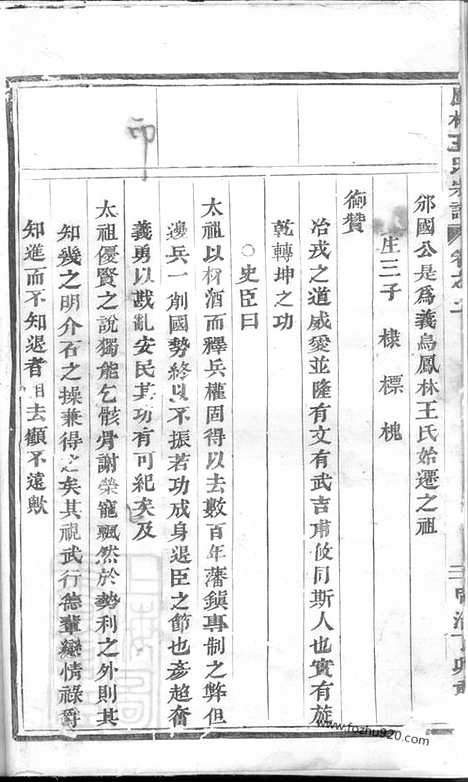 邠國公是爲義烏鳳林王氏始遷之祖
生三子 棣 標 槐
御贊
治戎之道威愛並隆有文有武吉甫攸同斯人也實有旋
乾轉坤之功
○史臣曰
太祖以杯酒而釋兵權固得以去數百年藩鎮專制之弊但
邊兵一削國勢終以不振若功成身退臣之節也彥超奮
義勇以戡亂安民其功有可紀矣及
太祖優賢之說獨能乞骸骨謝榮寵飄然於勢利之外則其
知幾之明介石之操兼得之矣其視武行德輩戀情祿爵
知進而不知退者相去顧不遠歟
鳳林王氏宗譜 卷之二
三
www.fozhu920.com